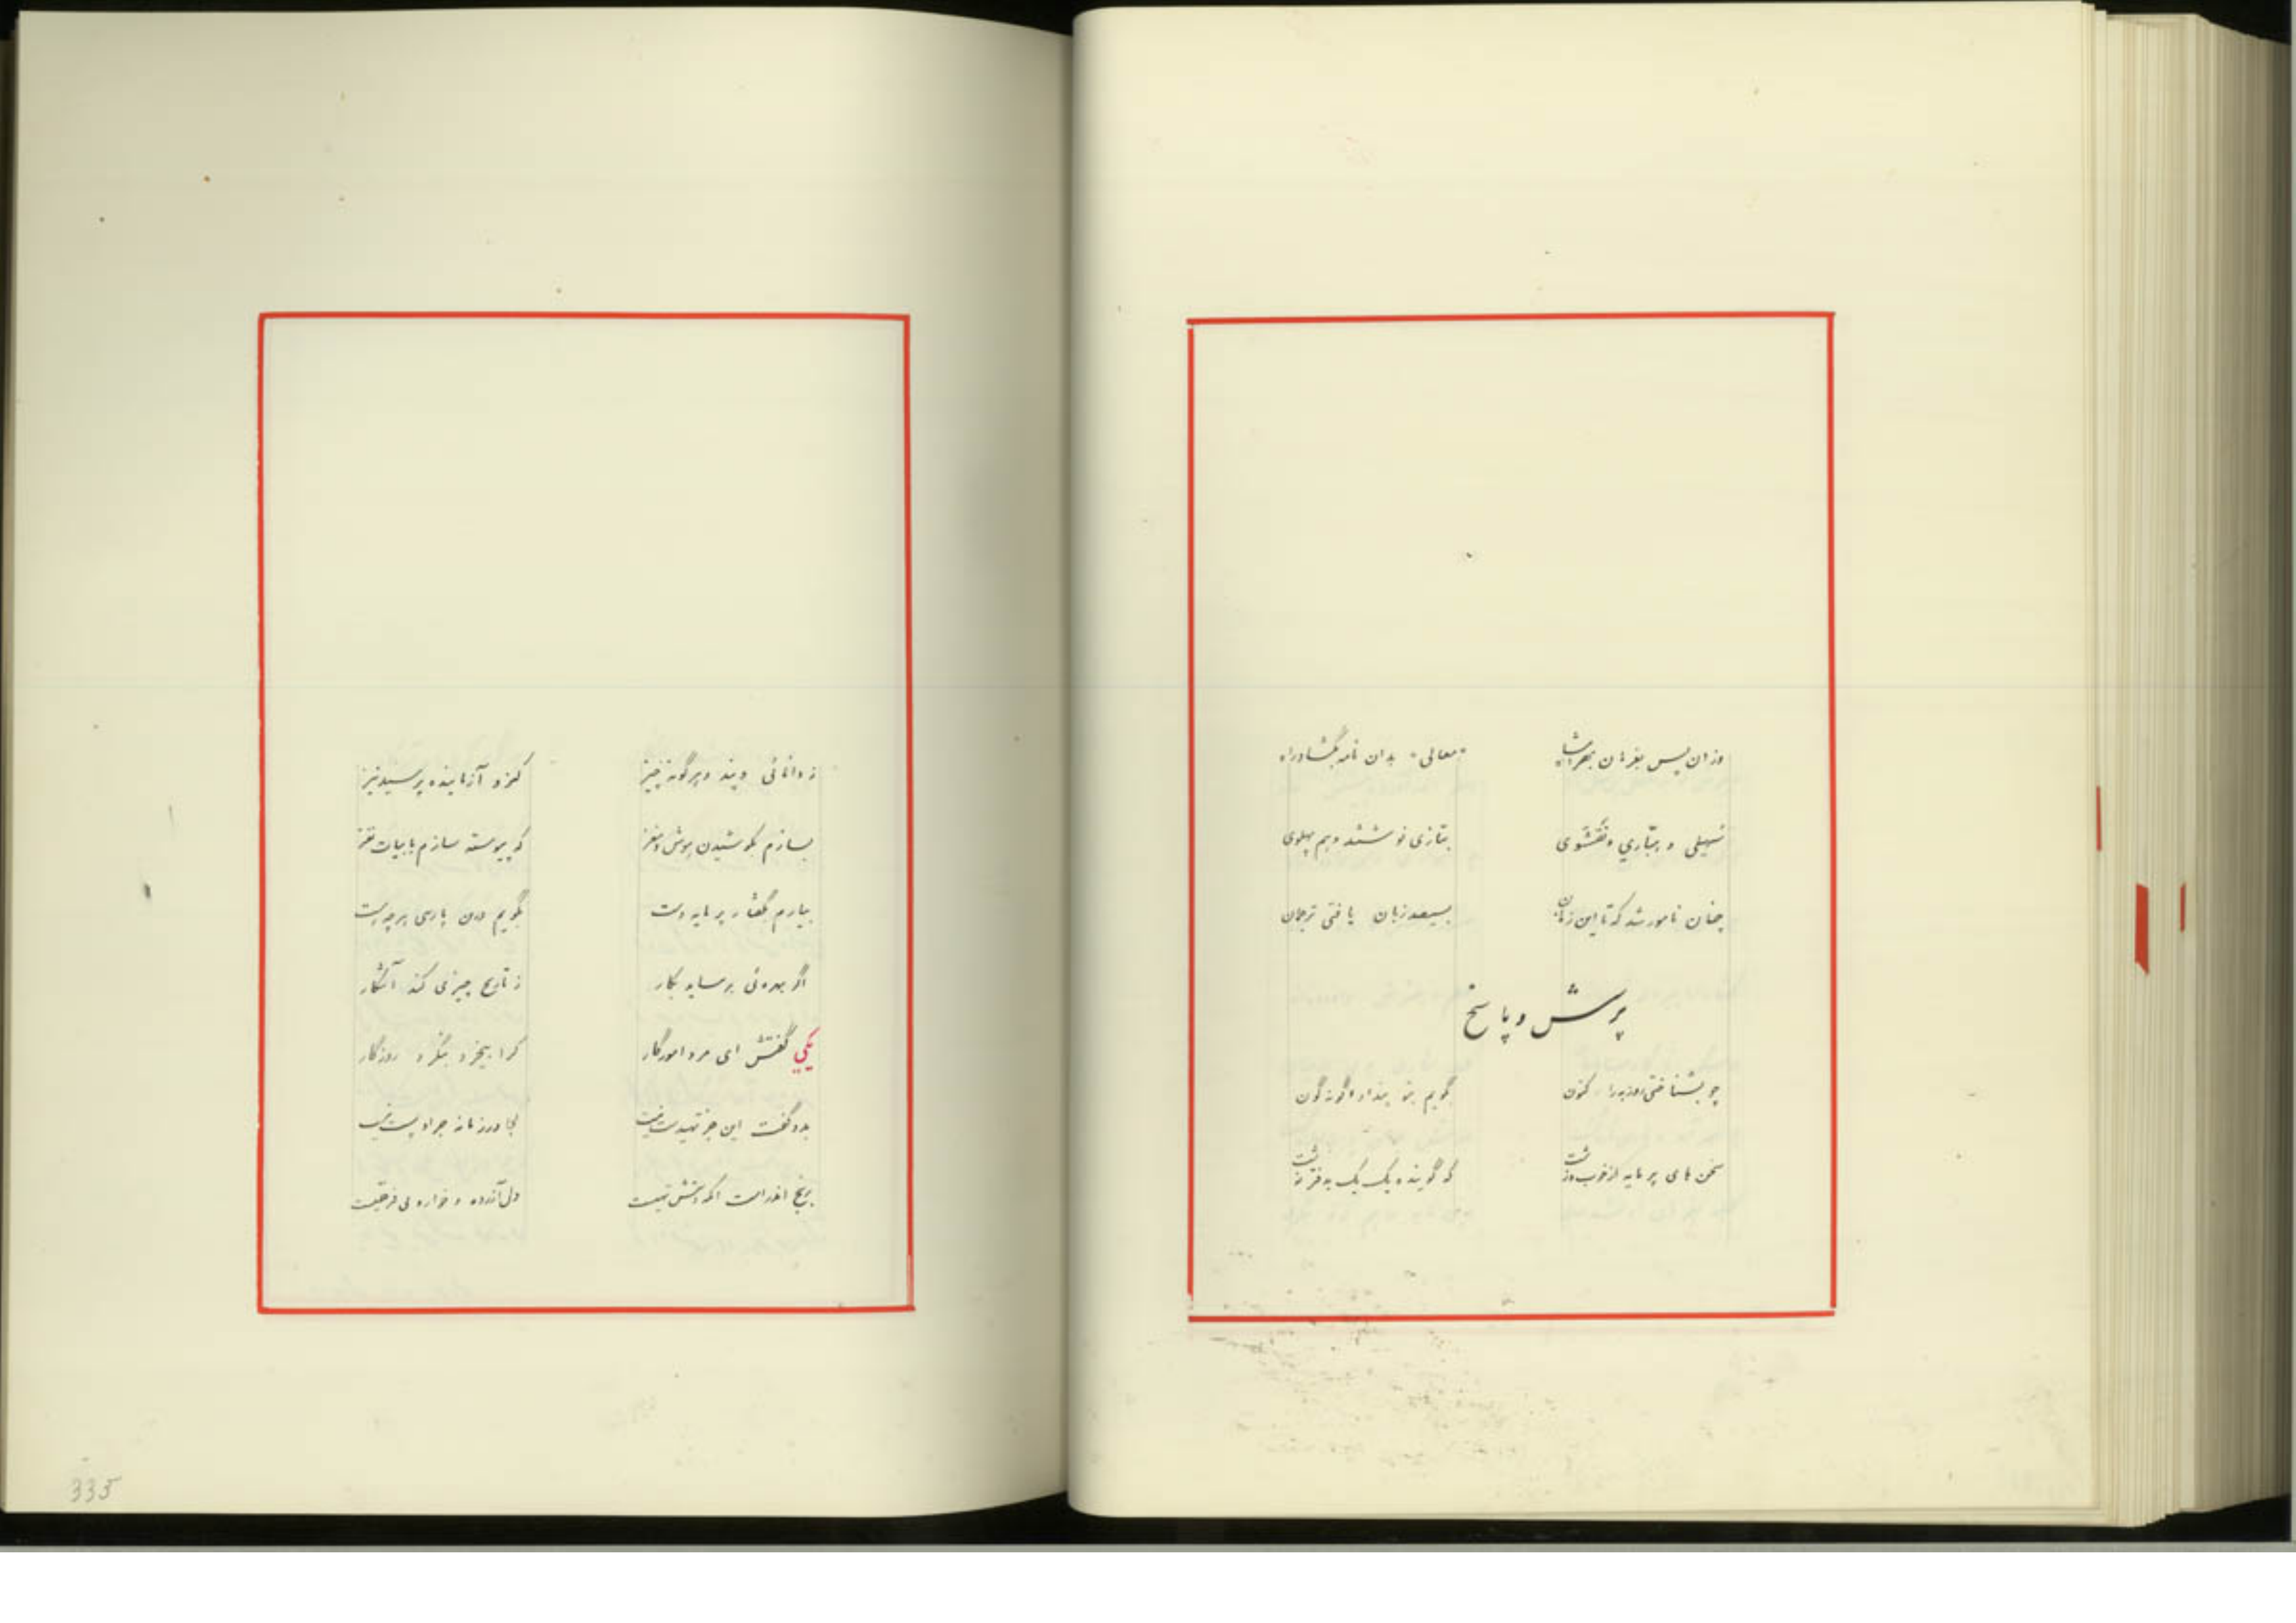 وزان پس بفرمان بهرامشاه «معالی» بدان نامه بگشاد راه
بتازی نوشتند و هم پهلوی
چنان نامور شد که تا این زمان بسیصد زبان یافتی ترجمان
پرسش و پاسخ
چو بشناختی روزبه را کنون بگویم پند گونه گون
سخن های پر مایه از خوب و زشت که گوینده یک یک به نوشت
ز دانائی و پند و هر گونه چیز کزو آزماینده پرسید نیز
بسازم بکوشیدن هوش و مغز که پیوسته سازم بابیات نغز
بیارم بگفتار پر مایه دست بگویم درین پارسی هر چه هست
اگر بهره ئی بکار ز تاریخ چیزی کند آشکار
یکی گفتش ای مرد آموزگار کرا بنگرد روزگار
بدو گفت این جز تهیدست نیست کجا در زمانه جز او پست نیست
برنج اندر است آنکه دستش تهیست دل آزرده و خوار و بی فرهیست
335